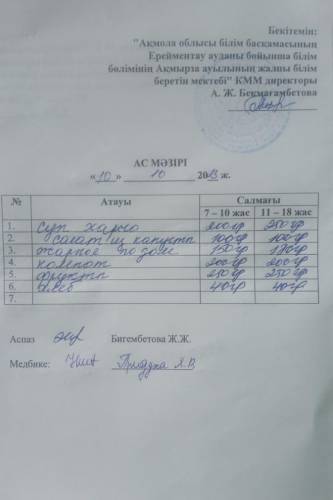 Бекітемін:
"Ақмола облысы білім басқамасының
Ерейментау ауданы бойынша білім
бөлімінің Ақмырза ауылының жалпы білім
беретін мектебі" КММ директоры
А. Ж. Бекмағамбетова
АС МӘЗІРІ
«10» 10 2023 ж.
№ Атауы Салмағы
7 – 10 жас 11 – 18 жас
1. Суп харчо 200 гр 250 гр
2. Салат из капусты 100 гр 100 гр
3. Жаркое по дом 150 гр
4. компот 200 гр 200 гр
5. фрукты 250 гр 250 гр
6. хлеб 40 гр 40 гр
7.
Аспаз Бигембетова Ж.Ж.
Медбике: